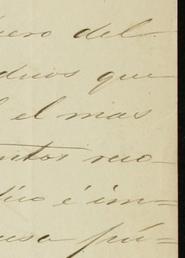 ero del
duos que
l el mas
ntos reo-
dico é im-
ensa pú-